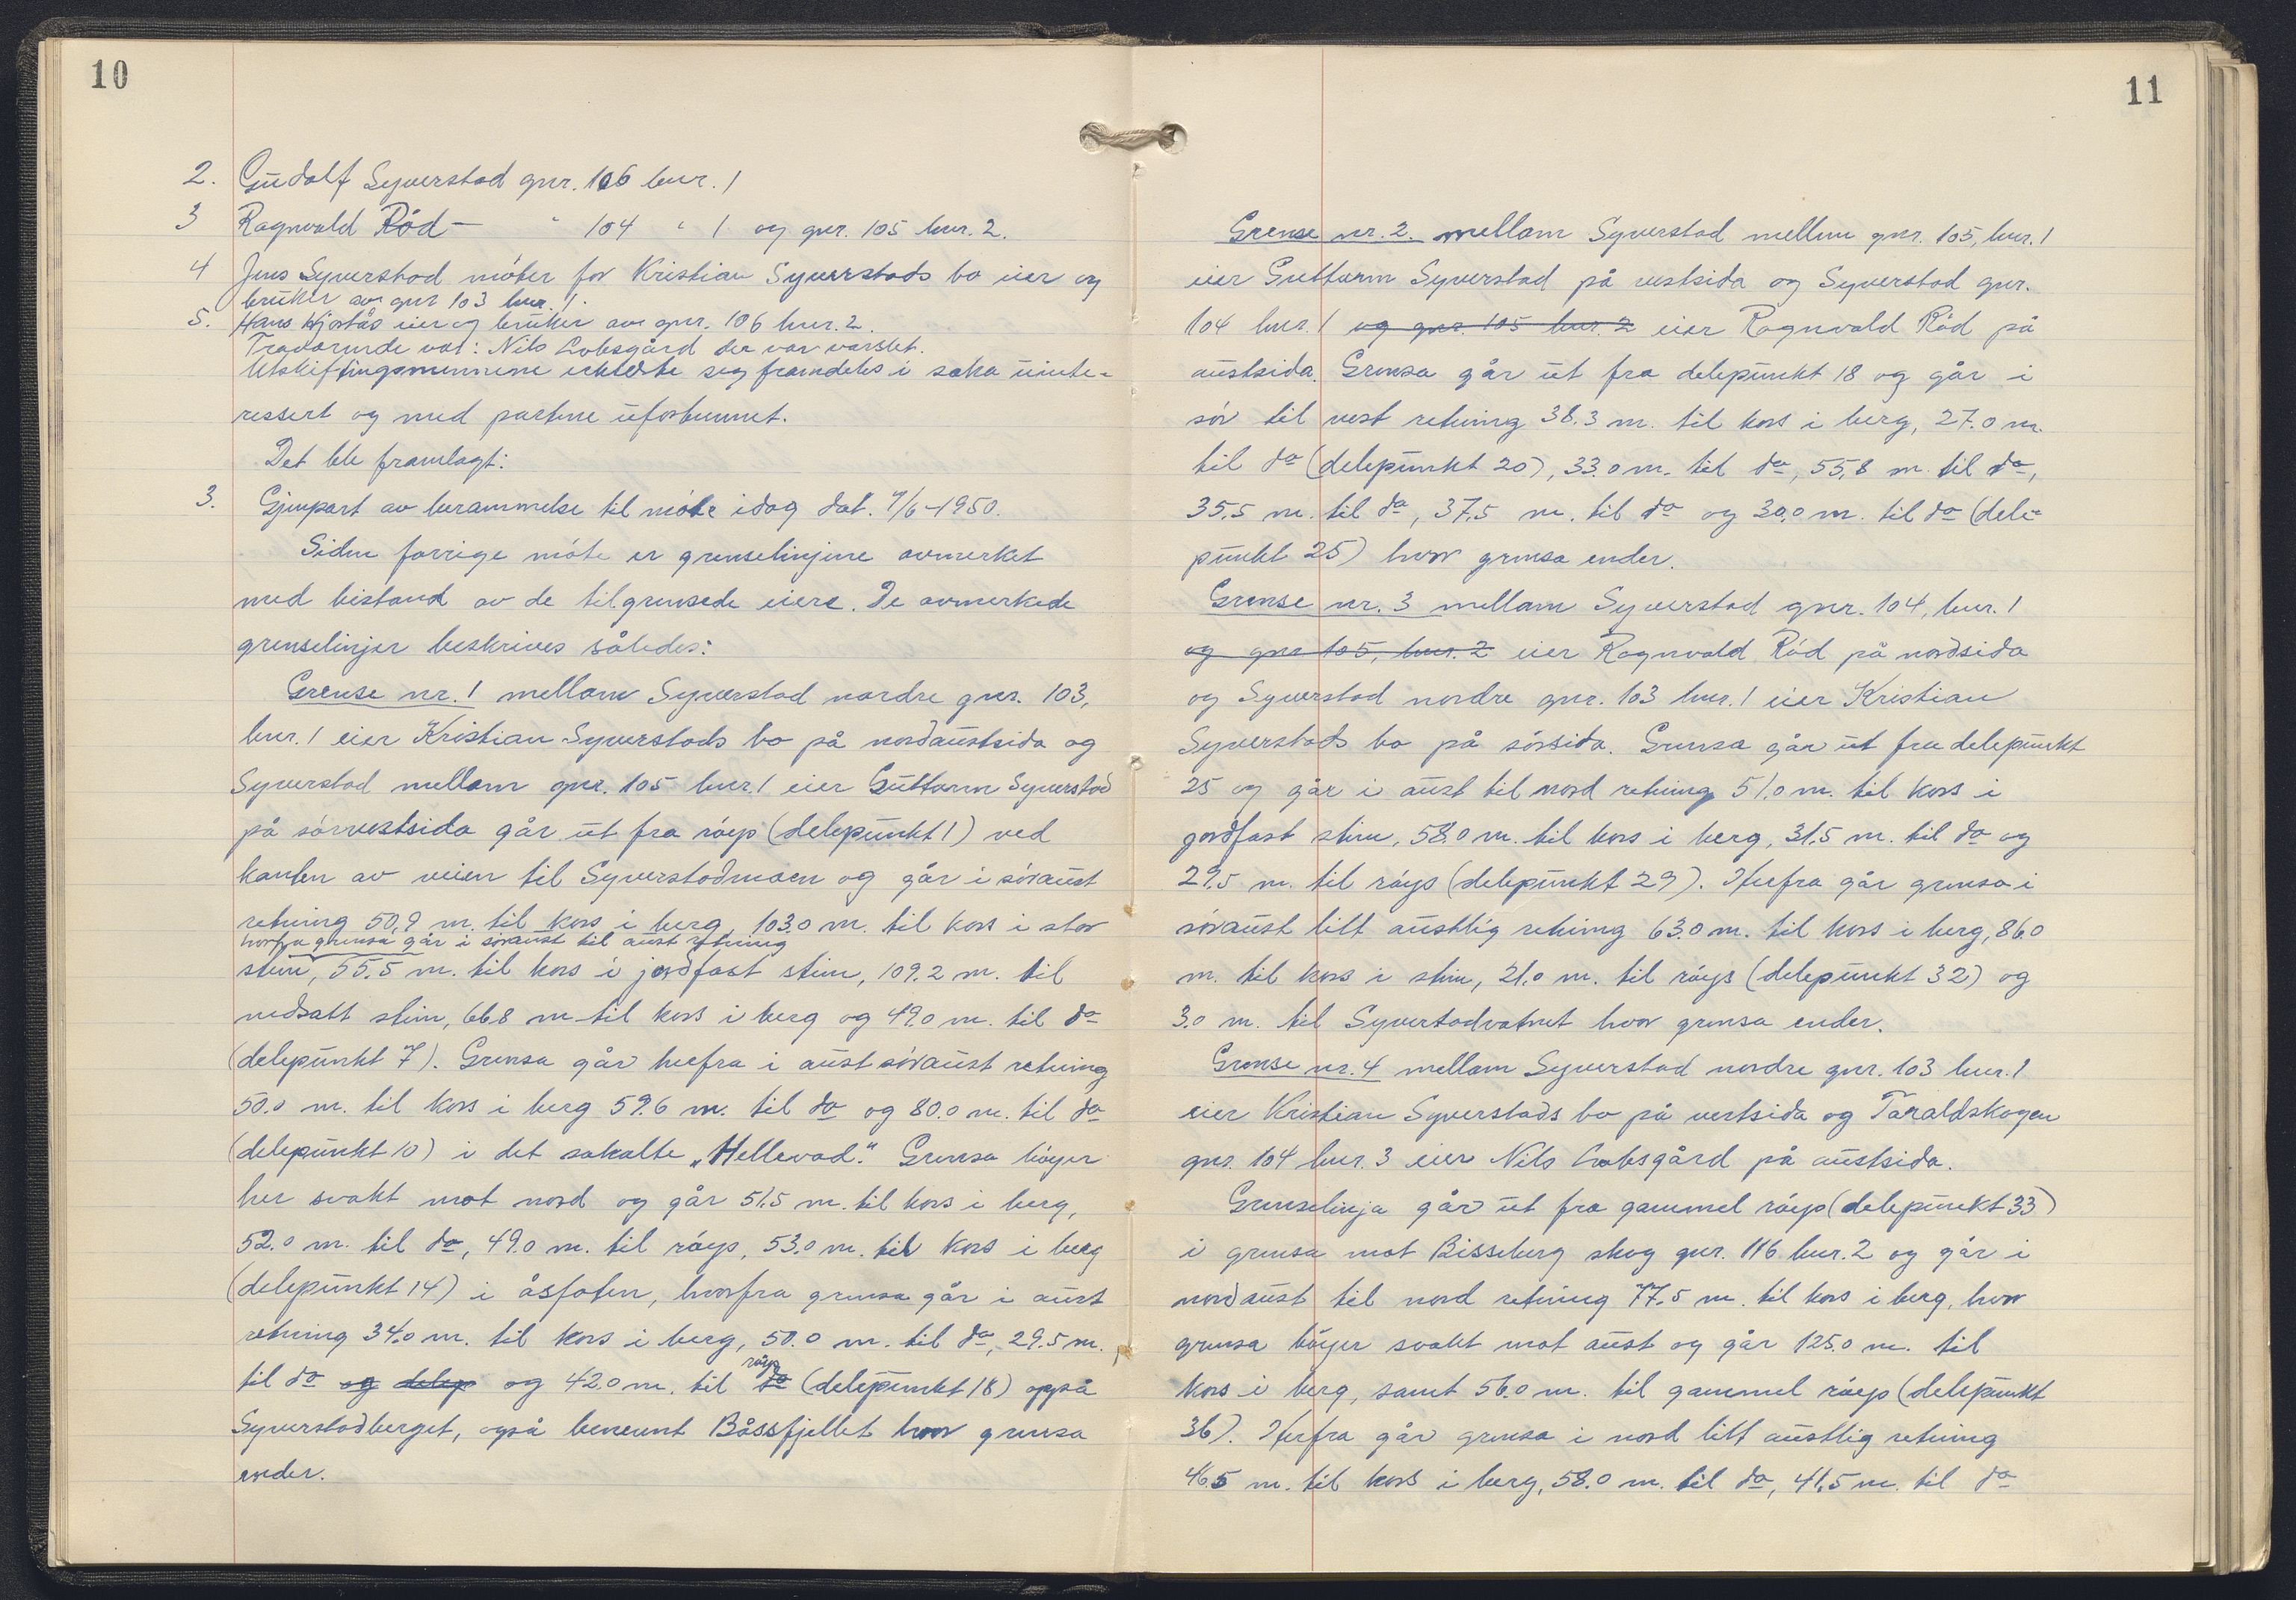 10
2. Gudolf Syverstad gnr. 106 bnr. 1
3 Ragnvald Rød — " 104 " 1 og gnr. 105 bnr. 2.
4 Jens Syverstad møter for Kristian Syverstads bo eier og
bruker av gnr 103 bnr. 1.
5. Hans Hjortås eier og bruker av gnr. 106 bnr. 2.
Fraværende var: Nils Lobsgård der var varslet.
Utskiftingsmennene erklærte seg framdeles i saka uinte-
ressert og med partene uforbunnet.
Det ble framlagt:
3. Gjenpart av berammelse til møte idag dat. 9/6-1950.
Siden forrige møte er grenselinjene avmerket
med bistand av de tilgrensede eiere. De avmerkede
grenselinjer beskrives således:
Grense nr. 1 mellom Syverstad nordre gnr. 103,
bnr. 1 eier Kristian Syverstads bo på nordaustsida og
Syverstad mellom gnr. 105 bnr. 1 eier Guttorm Syverstad
på sørvestsida går ut fra røys (delepunkt 1) ved
kanten av veien til Syverstadmoen og går i søraust
retning 50,9 m. til kors i berg, 103.0 m. til kors i stor
horfra grensa går i søraust til aust retning
stein, 55.5 m. til kors i jordfast stein, 109.2 m. til
nedsatt stein, 66.8 m til kors i berg og 49.0 m. til do
(delepunkt 7). Grensa går herfra i aust søraust retning
50.0 m. til kors i berg 59.6 m. til do og 80.0 m. til do
(delepunkt 10) i det sakalte „Hellevad." Grensa bøyer
her svakt mot nord og går 51.5 m. til kors i berg,
52.0 m. til do, 49.0 m. til røys, 53.0 m. til kors i berg
(delepunkt 14) i åsfoten, hvorfra grensa går i aust
retning 34.0 m. til kors i berg, 50.0 m. til do, 29.5 m.
til do og delep og 42.0 m. til do røys (delepunkt 18) oppå
Syverstadberget, også benevnt Båssfjellet hvor grensa
ender.
11
Grense nr. 2. mellom Syverstad mellem gnr. 105, bnr. 1
eier Guttorm Syverstad på vestsida og Syverstad gnr.
104 bnr. 1 og gnr. 105 bnr. 2 eier Ragnvald Rød på
austsida. Grensa går ut fra delepunkt 18 og går i
sør til vest retning 38.3 m. til kors i berg, 27.0 m.
til do (delepunkt 20), 33.0 m. til do, 55.8 m. til do,
35.5 m. til do, 37.5 m. til do og 30.0 m. til do (dele-
punkt 25) hvor grensa ender.
Grense nr. 3 mellom Syverstad gnr. 104, bnr. 1
og gnr 105, bnr. 2 eier Ragnvald Rød på nordsida
og Syverstad nordre gnr. 103 bnr. 1 eier Kristian
Syverstads bo på sørsida. Grensa går ut fra delepunkt
25 og går i aust til nord retning 51.0 m. til kors i
jordfast stein, 58.0 m. til kors i berg, 31.5 m. til do og
29.5 m. til røys (delepunkt 29). Herfra går grensa i
søraust litt austlig retning 63.0 m. til kors i berg, 86.0
m. til kors i stein, 21.0 m. til røys (delepunkt 32) og
3.0 m. til Syvertadvatnet hvor grensa ender.
Grense nr. 4 mellom Syverstad nordre gnr. 103 bnr. 1
eier Kristian Syverstads bo på vestsida og Taraldskogen
gnr. 104 bnr. 3 eier Nils Lobsgård på austsida.
Grenselinja går ut fra gammel røys (delepunkt 33)
i grensa mot Bisseberg skog gnr. 116 bnr. 2 og går i
nordaust til nord retning 77.5 m. til kors i berg, hvor
grensa bøyer svakt mot aust og går 125.0 m. til
kors i berg, samt 56.0 m. til gammel røys (delepunkt
36). Herfra går grensa i nord litt austlig retning
46.5 m. til kors i berg, 58.0 m. til do, 41.5 m. til do